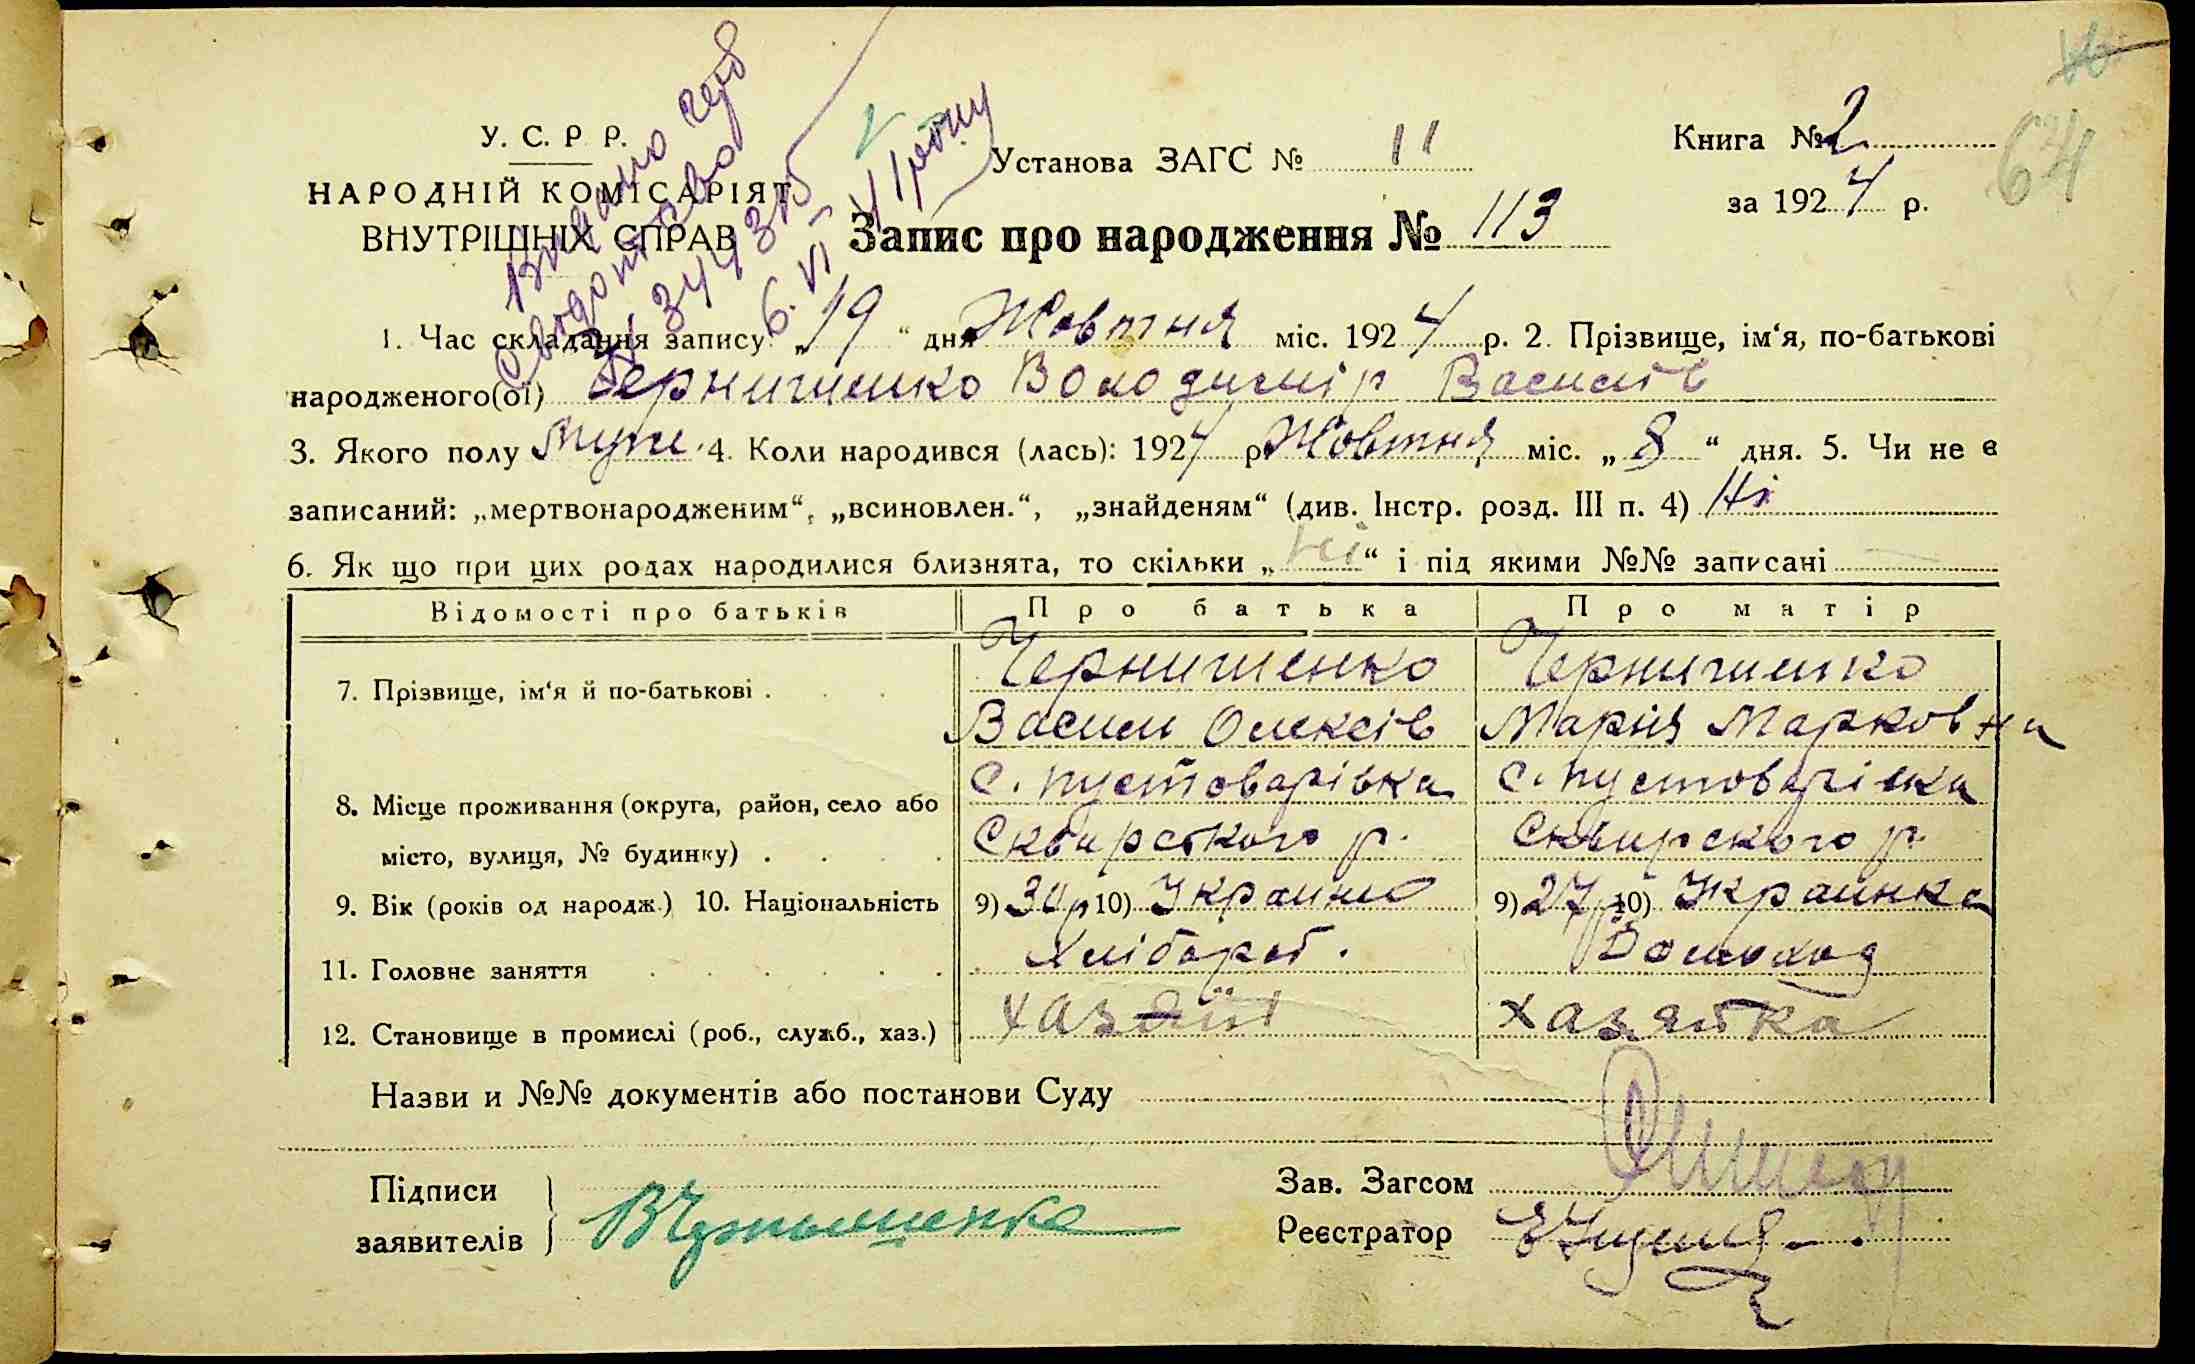 У. С. Р. Р.
НАРОДНІЙ КОМІСАРІЯТ
ВНУТРІШНІХ СПРАВ
Видано
6. VI
Установа ЗАГС № 11
Книга № 2
за 1924 р.
64
Запис про народження № 113
1. Час складання запису „19“ дня Жовтня міс. 1924 р. 2. Прізвище, ім‘я, по-батькові
народженого(ої) Чернишенко Володимір Василів
3. Якого полу Муж. 4. Коли народився (лась): 1924 р. Жовтня міс. „8“ дня. 5. Чи не є
записаний: „мертвонародженим“, „всиновлен.“, „знайденям“ (див. Інстр. розд. III п. 4) Ні
6. Як що при цих родах народилися близнята, то скільки „Ні“ і під якими №№ записані
Відомості про батьків Про батька Про матір
7. Прізвище, ім‘я й по-батькові . Чернишенко Чернишенко
Васили Олексів Мария Марковна
8. Місце проживання (округа, район, село або с. Пустоварівка с. Пустоварівка
місто, вулиця, № будинку) . Сквирського р. Сквирского р.
9. Вік (років од народж.) 10. Національність 9) 30 р 10) Украин 9) 27 р 10) Украинка
11. Головне заняття Хлібороб. Домоход
12. Становище в промислі (роб., служб., хаз.) хазяїн хазяйка
Назви и №№ документів або постанови Суду
Підписи
заявителів ВЧернышенко
Зав. Загсом
Реєстратор